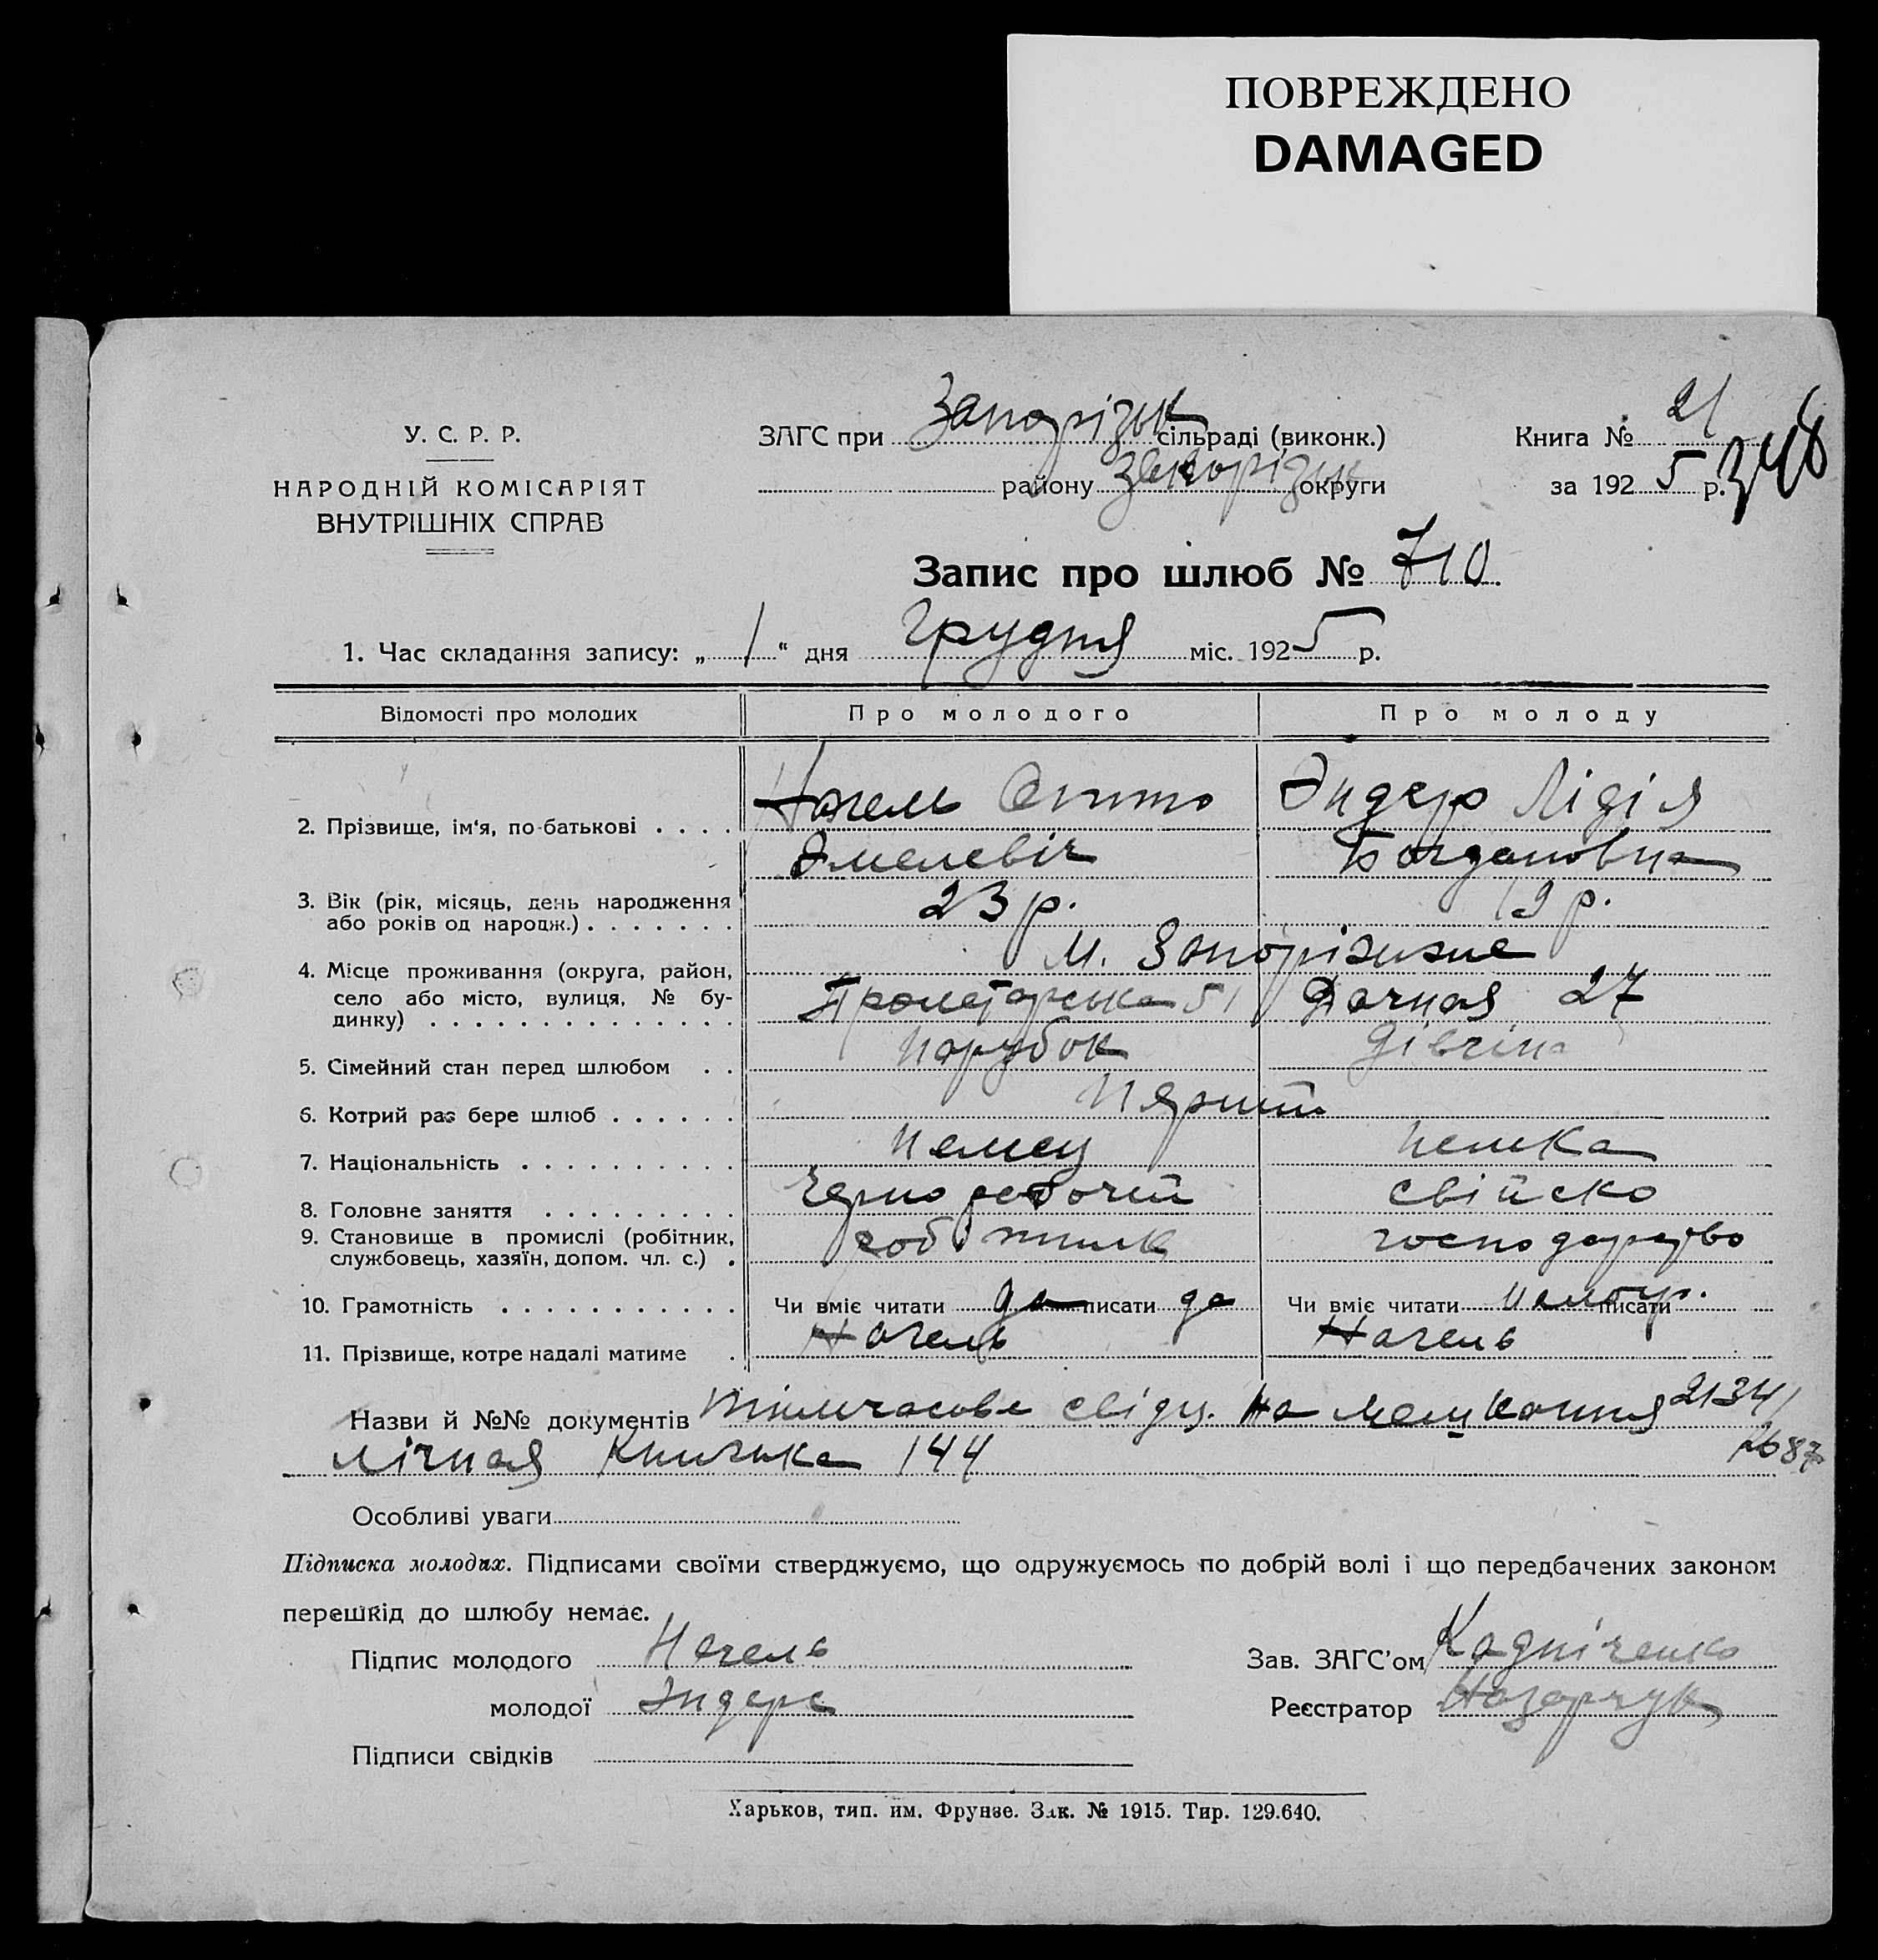 ПОВРЕЖДЕНО
DAMAGED
У. С. Р. Р.
НАРОДНІЙ КОМІСАРІЯТ
ВНУТРІШНІХ СПРАВ
ЗАГС при Запорізьк сільраді (виконк.)
району Запорізьк округи
Книга № 21
за 1925 р.
348
Запис про шлюб № 710.
1. Час складання запису: „ 1 “ дня Грудня міс. 1925 р.
Відомості про молодих Про молодого Про молоду
2. Прізвище, ім'я, по-батькові . . . . Нагель Отто Эндерс Лідія
Эмелевіч Богдановна
3. Вік (рік, місяць, день народження 23 р. 19 р.
або років од народж.) . . . . . . .
4. Місце проживання (округа, район, м. Запоріжже
село або місто, вулиця, № бу- Пролетарська 51 Дачная 27
динку) . . . . . . . . . . . . . .
5. Сімейний стан перед шлюбом . . Парубок Дівчіна
6. Котрий раз бере шлюб . . . . . . Перший
7. Національність . . . . . . . . . . Немец Немка
8. Головне заняття . . . . . . . . . Чернорабочий свійско
9. Становище в промислі (робітник, робітник господарство
службовець, хазяїн, допом. чл. с.) .
10. Грамотність . . . . . . . . . . . . Чи вміє читати да писати да Чи вміє читати писати
11. Прізвище, котре надалі матиме . Нагель Нагель
Назви й №№ документів тимчасове свідц. на мешкання 21341
лічная книжка 144 2687
Особливі уваги
Підписка молодих. Підписами своїми стверджуємо, що одружуємось по добрій волі і що передбачених законом
перешкід до шлюбу немає.
Підпис молодого Нагель Зав. ЗАГС'ом Кадніченко
молодої Эндерс Реєстратор Назарчук
Підписи свідків
Харьков, тип. им. Фрунзе. Зак. № 1915. Тир. 129.640.